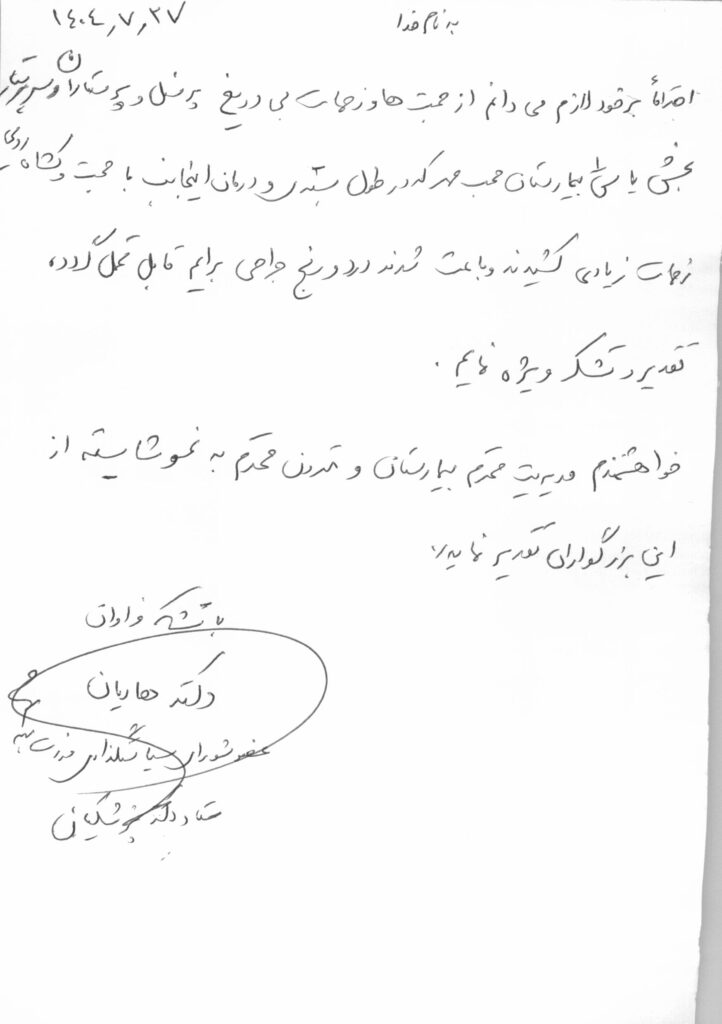 به نام خدا
۱۴۰۴٫۷٫۲۷
احتراماً برخود لازم می دانم از محبت ها و زحمات بی دریغ پرسنل و پرستاران و سرپرستار
بخش یاس ۱ بیمارستان محب مهر که در طول بستری و درمان اینجانب با محبت و گشاده رویی
زحمات زیادی کشیدند و باعث شدند درد و رنج جراحی برایم قابل تحمل گردد،
تقدیر و تشکر ویژه نمایم.
خواهشمندم مدیریت محترم بیمارستان و محترم به نحو شایسته از
این بزرگواران تقدیر نمایند.
با تشکر فراوان
دکتر هاریان
عضو شورای سیاستگذاری
ستاد دکتر پزشکیان